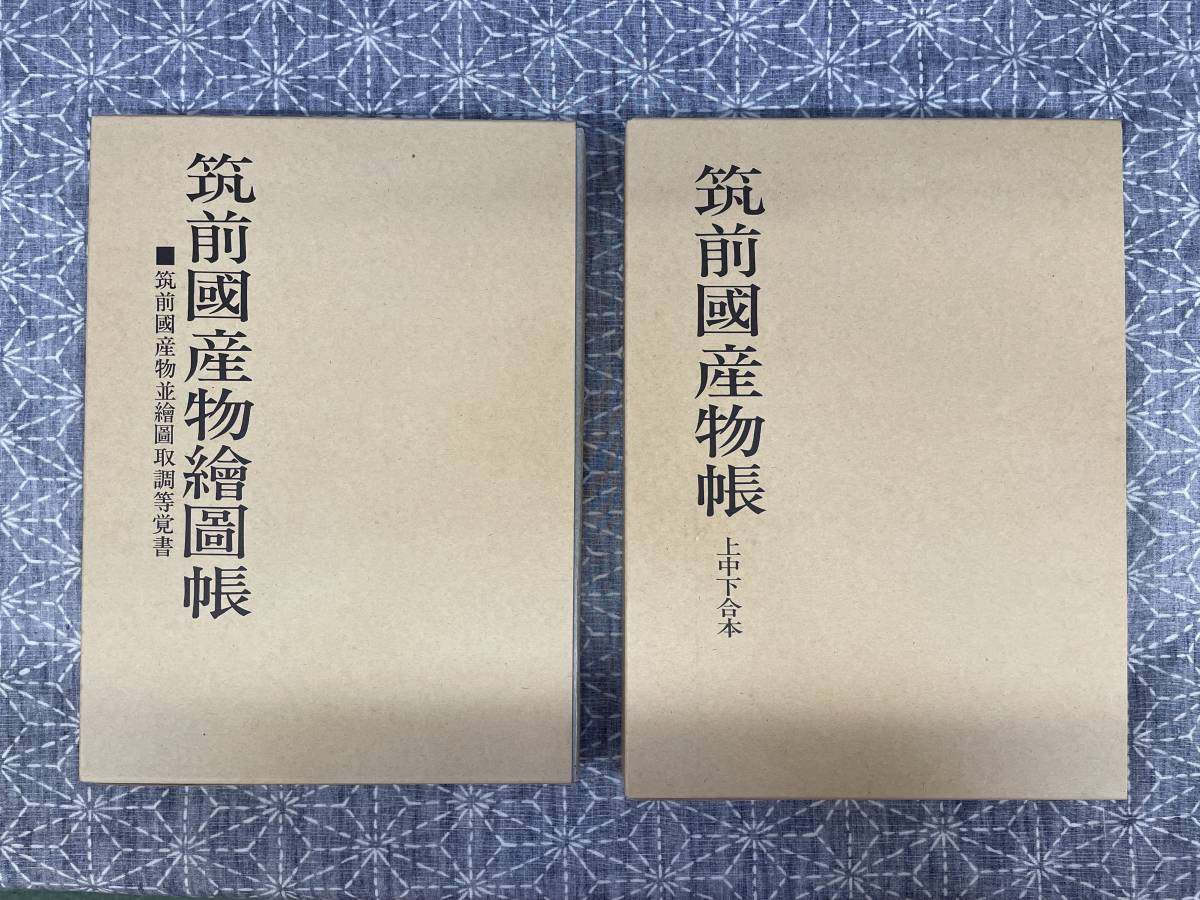 筑前國産物帳
上中下合本
筑前國産物繪圖帳
■筑前國産物並繪圖取調等覚書